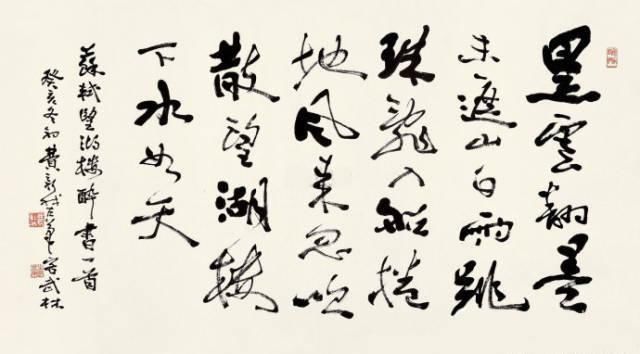 黑雲翻墨
未遮山白雨跳
珠亂入船捲
地風來忽吹
散望湖樓
下水如天
蘇軾望湖樓醉書一首
癸亥冬初費新我左筆客武林